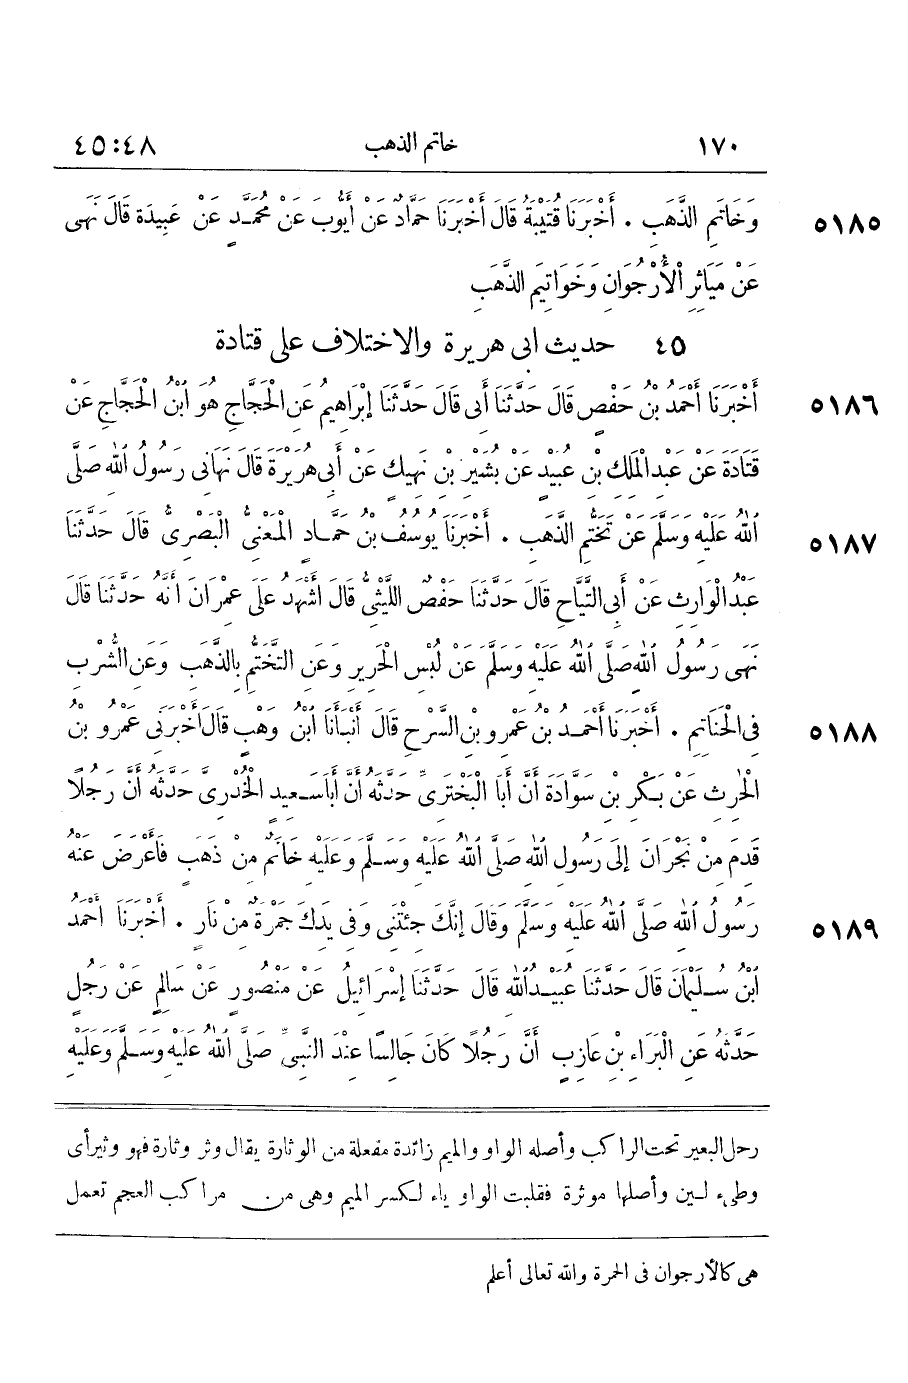 ١٧٠ خاتم الذهب ٤٥:٤٨
وَخَاتَمِ الذَّهَبِ . أَخْبَرَنَا قُتَيْبَةُ قَالَ أَخْبَرَنَا حَمَّادٌ عَنْ أَيُّوبَ عَنْ مُحَمَّدٍ عَنْ عَبِيدَةَ قَالَ نَهَى ٥١٨٥
عَنْ مَيَاثِرِ الْأُرْجُوَانِ وَخَوَاتِيمِ الذَّهَبِ
٤٥ حديث ابى هريرة والاختلاف على قتادة
أَخْبَرَنَا أَحْمَدُ بْنُ حَفْصٍ قَالَ حَدَّثَنَا أَبِى قَالَ حَدَّثَنَا إِبْرَاهِيمُ عَنِ الْحَجَّاجِ هُوَ ابْنُ الْحَجَّاجِ عَنْ ٥١٨٦
قَتَادَةَ عَنْ عَبْدِ الْمَلِكِ بْنِ عُبَيْدٍ عَنْ بَشِيْرِ بْنِ نَهِيكٍ عَنْ أَبِى هُرَيْرَةَ قَالَ نَهَانِى رَسُولُ اللهِ صَلَّى
اللهُ عَلَيْهِ وَسَلَّمَ عَنْ تَخَتُّمِ الذَّهَبِ . أَخْبَرَنَا يُوسُفُ بْنُ حَمَّادٍ الْمَعْنِىُّ الْبَصْرِىُّ قَالَ حَدَّثَنَا ٥١٨٧
عَبْدُ الْوَارِثِ عَنْ أَبِى التَّيَّاحِ قَالَ حَدَّثَنَا حَفْصٌ اللَّيْثِىُّ قَالَ أَشْهَدُ عَلَى عِمْرَانَ أَنَّهُ حَدَّثَنَا قَالَ
نَهَى رَسُولُ اللهِ صَلَّى اللهُ عَلَيْهِ وَسَلَّمَ عَنْ لُبْسِ الْحَرِيرِ وَعَنِ التَّخَتُّمِ بِالذَّهَبِ وَعَنِ الشُّرْبِ
فِى الْحَنَاتِمِ . أَخْبَرَنَا أَحْمَدُ بْنُ عَمْرِو بْنِ السَّرْحِ قَالَ أَنْبَأَنَا ابْنُ وَهْبٍ قَالَ أَخْبَرَنِى عَمْرُو بْنُ ٥١٨٨
الْحٰرِثِ عَنْ بَكْرِ بْنِ سَوَّادَةَ أَنَّ أَبَا الْبَخْتَرِىِّ حَدَّثَهُ أَنَّ أَبَا سَعِيدٍ الْخُدْرِىَّ حَدَّثَهُ أَنَّ رَجُلًا
قَدِمَ مِنْ نَجْرَانَ إِلَى رَسُولِ اللهِ صَلَّى اللهُ عَلَيْهِ وَسَلَّمَ وَعَلَيْهِ خَاتَمٌ مِنْ ذَهَبٍ فَأَعْرَضَ عَنْهُ
رَسُولُ اللهِ صَلَّى اللهُ عَلَيْهِ وَسَلَّمَ وَقَالَ إِنَّكَ جِئْتَنِى وَفِى يَدِكَ جَمْرَةٌ مِنْ نَارٍ . أَخْبَرَنَا أَحْمَدُ ٥١٨٩
ابْنُ سُلَيْمَانَ قَالَ حَدَّثَنَا عُبَيْدُ اللهِ قَالَ حَدَّثَنَا إِسْرَائِيلُ عَنْ مَنْصُورٍ عَنْ سَالِمٍ عَنْ رَجُلٍ
حَدَّثَهُ عَنِ الْبَرَاءِ بْنِ عَازِبٍ أَنَّ رَجُلًا كَانَ جَالِسًا عِنْدَ النَّبِىِّ صَلَّى اللهُ عَلَيْهِ وَسَلَّمَ وَعَلَيْهِ
رحل البعير تحت الراكب وأصله الواو والميم زائدة مفعلة من الوثارة يقال وثر وثارة فهو وثير أى
وطىء لين وأصلها موثرة فقلبت الواو ياء لكسر الميم وهى من مراكب العجم تعمل
هى كالأرجوان فى الحمرة والله تعالى أعلم